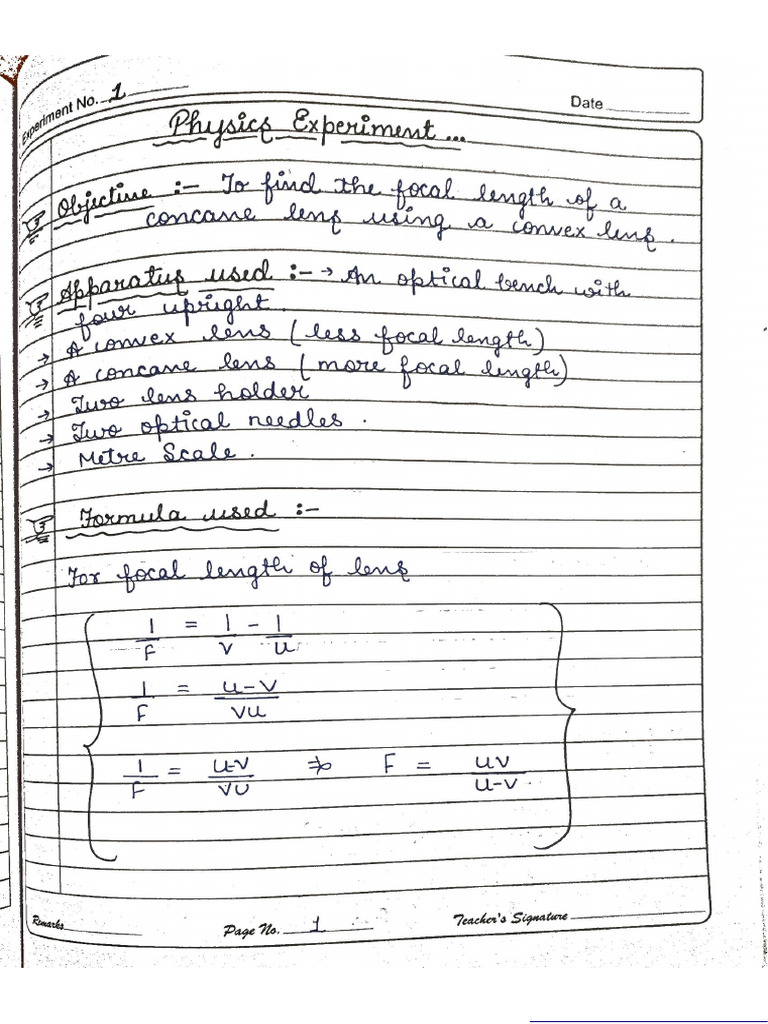 Experiment No. 1
Date
Physics Experiment...
Objective :- To find the focal length of a
concave lens using a convex lens.
Apparatus used :- → An optical bench with
four upright.
→ A convex lens (less focal length)
→ A concave lens (more focal length)
→ Two lens holder
→ Two optical needles.
→ Metre Scale.
Formula used :-
For focal length of lens
1/F = 1/v - 1/u
1/F = u-v/vu
1/F = u-v/vu ⇒ F = uv/u-v.
Remarks
Page No. 1
Teacher's Signature